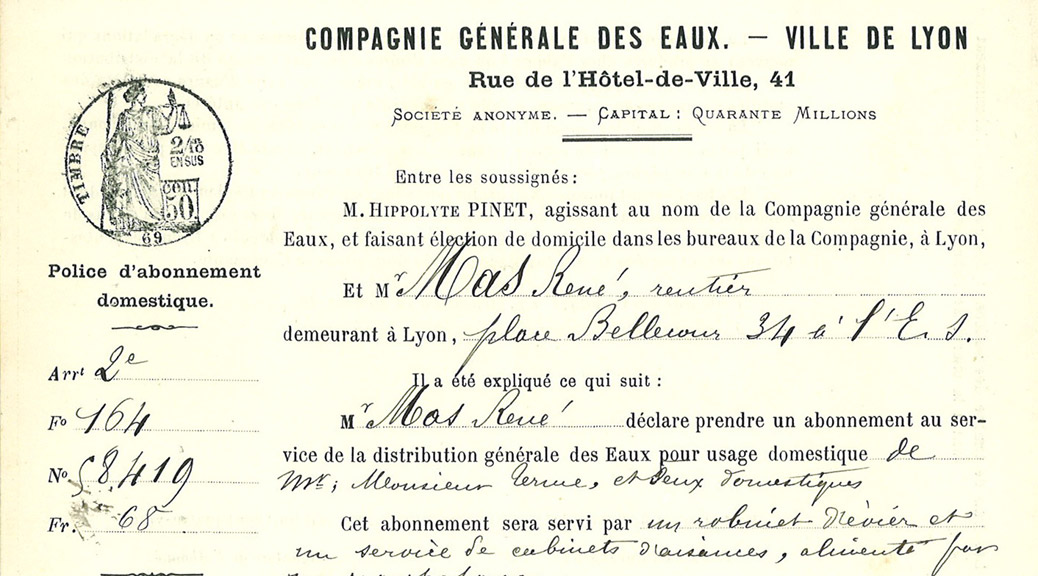 COMPAGNIE GÉNÉRALE DES EAUX. — VILLE DE LYON
Rue de l'Hôtel-de-Ville, 41
SOCIÉTÉ ANONYME. — CAPITAL : QUARANTE MILLIONS
TIMBRE
2/10
EN SUS
50
69
Police d'abonnement
domestique.
Arrt 2e
Fo 164
No 58,419
Fr. 68
Entre les soussignés :
M. HIPPOLYTE PINET, agissant au nom de la Compagnie générale des
Eaux, et faisant élection de domicile dans les bureaux de la Compagnie, à Lyon,
Et Mr Mas René, rentier
demeurant à Lyon, place Bellecour 34 à l'E. S.
Il a été expliqué ce qui suit :
Mr Mas René déclare prendre un abonnement au ser-
vice de la distribution générale des Eaux pour usage domestique de
Monsieur et deux domestiques
Cet abonnement sera servi par un robinet d'évier et
un service de cabinets d'aisances, alimenté par